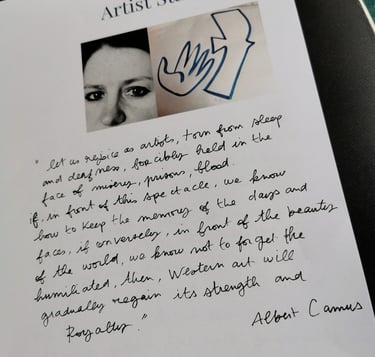 Artist St
" let us rejoice as artists, torn from sleep
and deafness, forcibly held in the
face of misery, prisons, blood.
if, in front of this spectacle, we know
how to keep the memory of the days and
faces, if conversely, in front of the beauties
of the world, we know not to forget the
humiliated, then, Western art will
gradually regain its strength and
Royalty."
Albert Camus